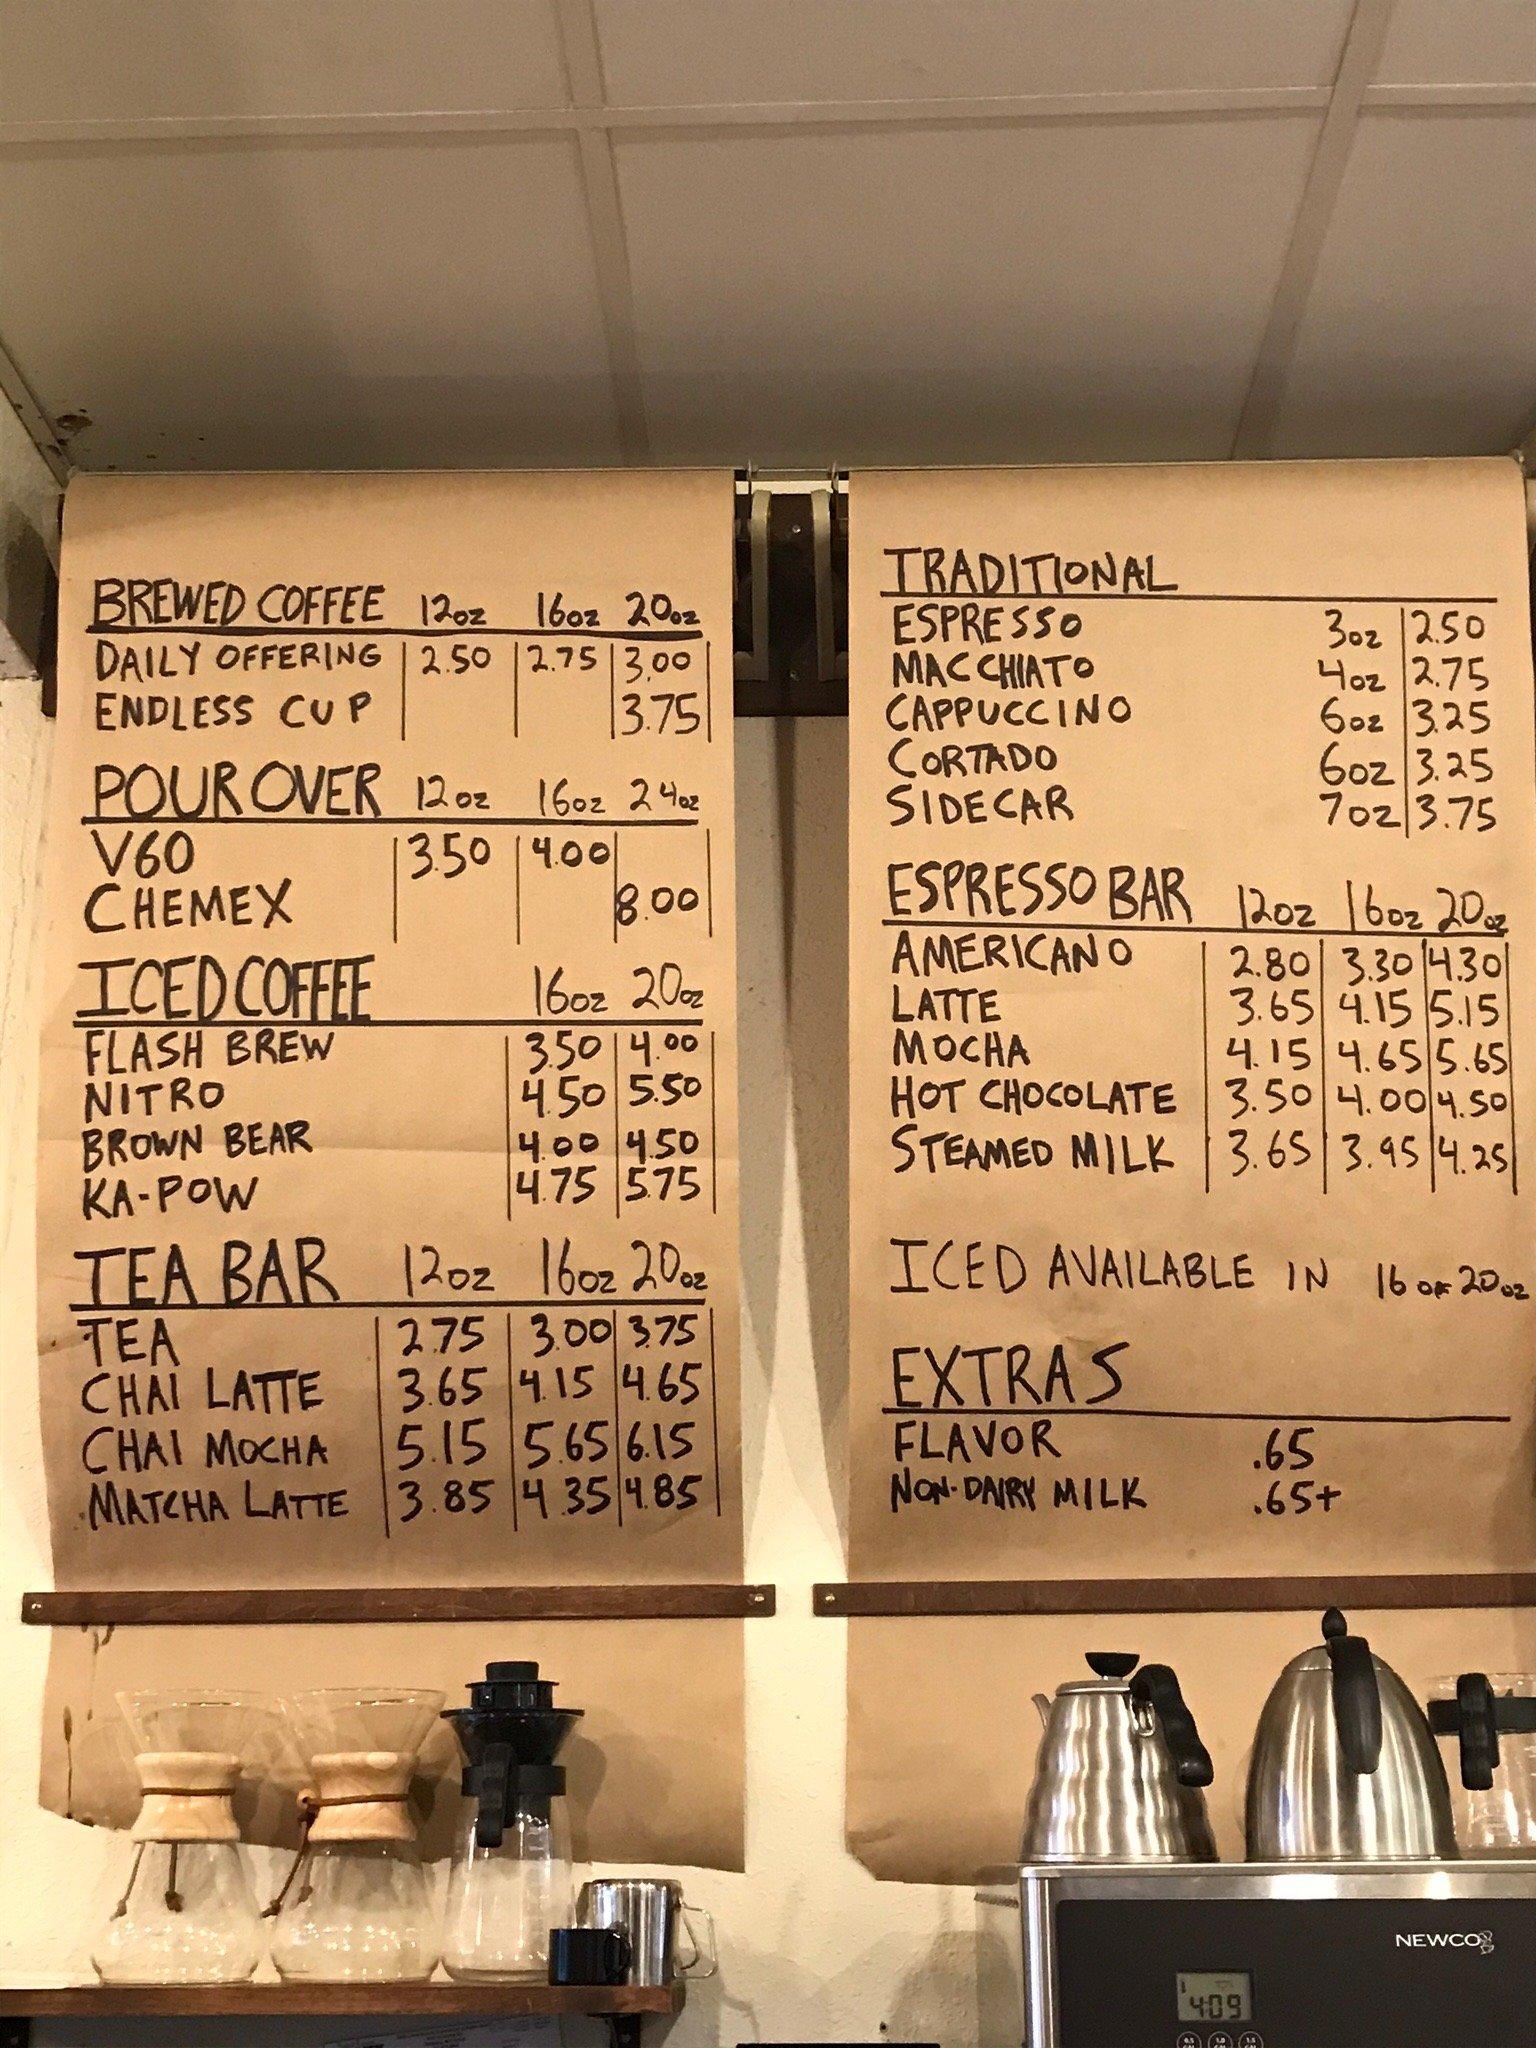 BREWED COFFEE 12oz 16oz 20oz
DAILY OFFERING 2.50 2.75 3.00
ENDLESS CUP 3.75
POUR OVER 12oz 16oz 24oz
V60 3.50 4.00
CHEMEX 8.00
ICED COFFEE 16oz 20oz
FLASH BREW 3.50 4.00
NITRO 4.50 5.50
BROWN BEAR 4.00 4.50
KA-POW 4.75 5.75
TEA BAR 12oz 16oz 20oz
TEA 2.75 3.00 3.75
CHAI LATTE 3.65 4.15 4.65
CHAI MOCHA 5.15 5.65 6.15
MATCHA LATTE 3.85 4.35 4.85
TRADITIONAL
ESPRESSO 3oz 2.50
MACCHIATO 4oz 2.75
CAPPUCCINO 6oz 3.25
CORTADO 6oz 3.25
SIDECAR 7oz 3.75
ESPRESSO BAR 12oz 16oz 20oz
AMERICANO 2.80 3.30 4.30
LATTE 3.65 4.15 5.15
MOCHA 4.15 4.65 5.65
HOT CHOCOLATE 3.50 4.00 4.50
STEAMED MILK 3.65 3.95 4.25
ICED AVAILABLE IN 16 OR 20oz
EXTRAS
FLAVOR .65
NON-DAIRY MILK .65+
NEWCO
4:09